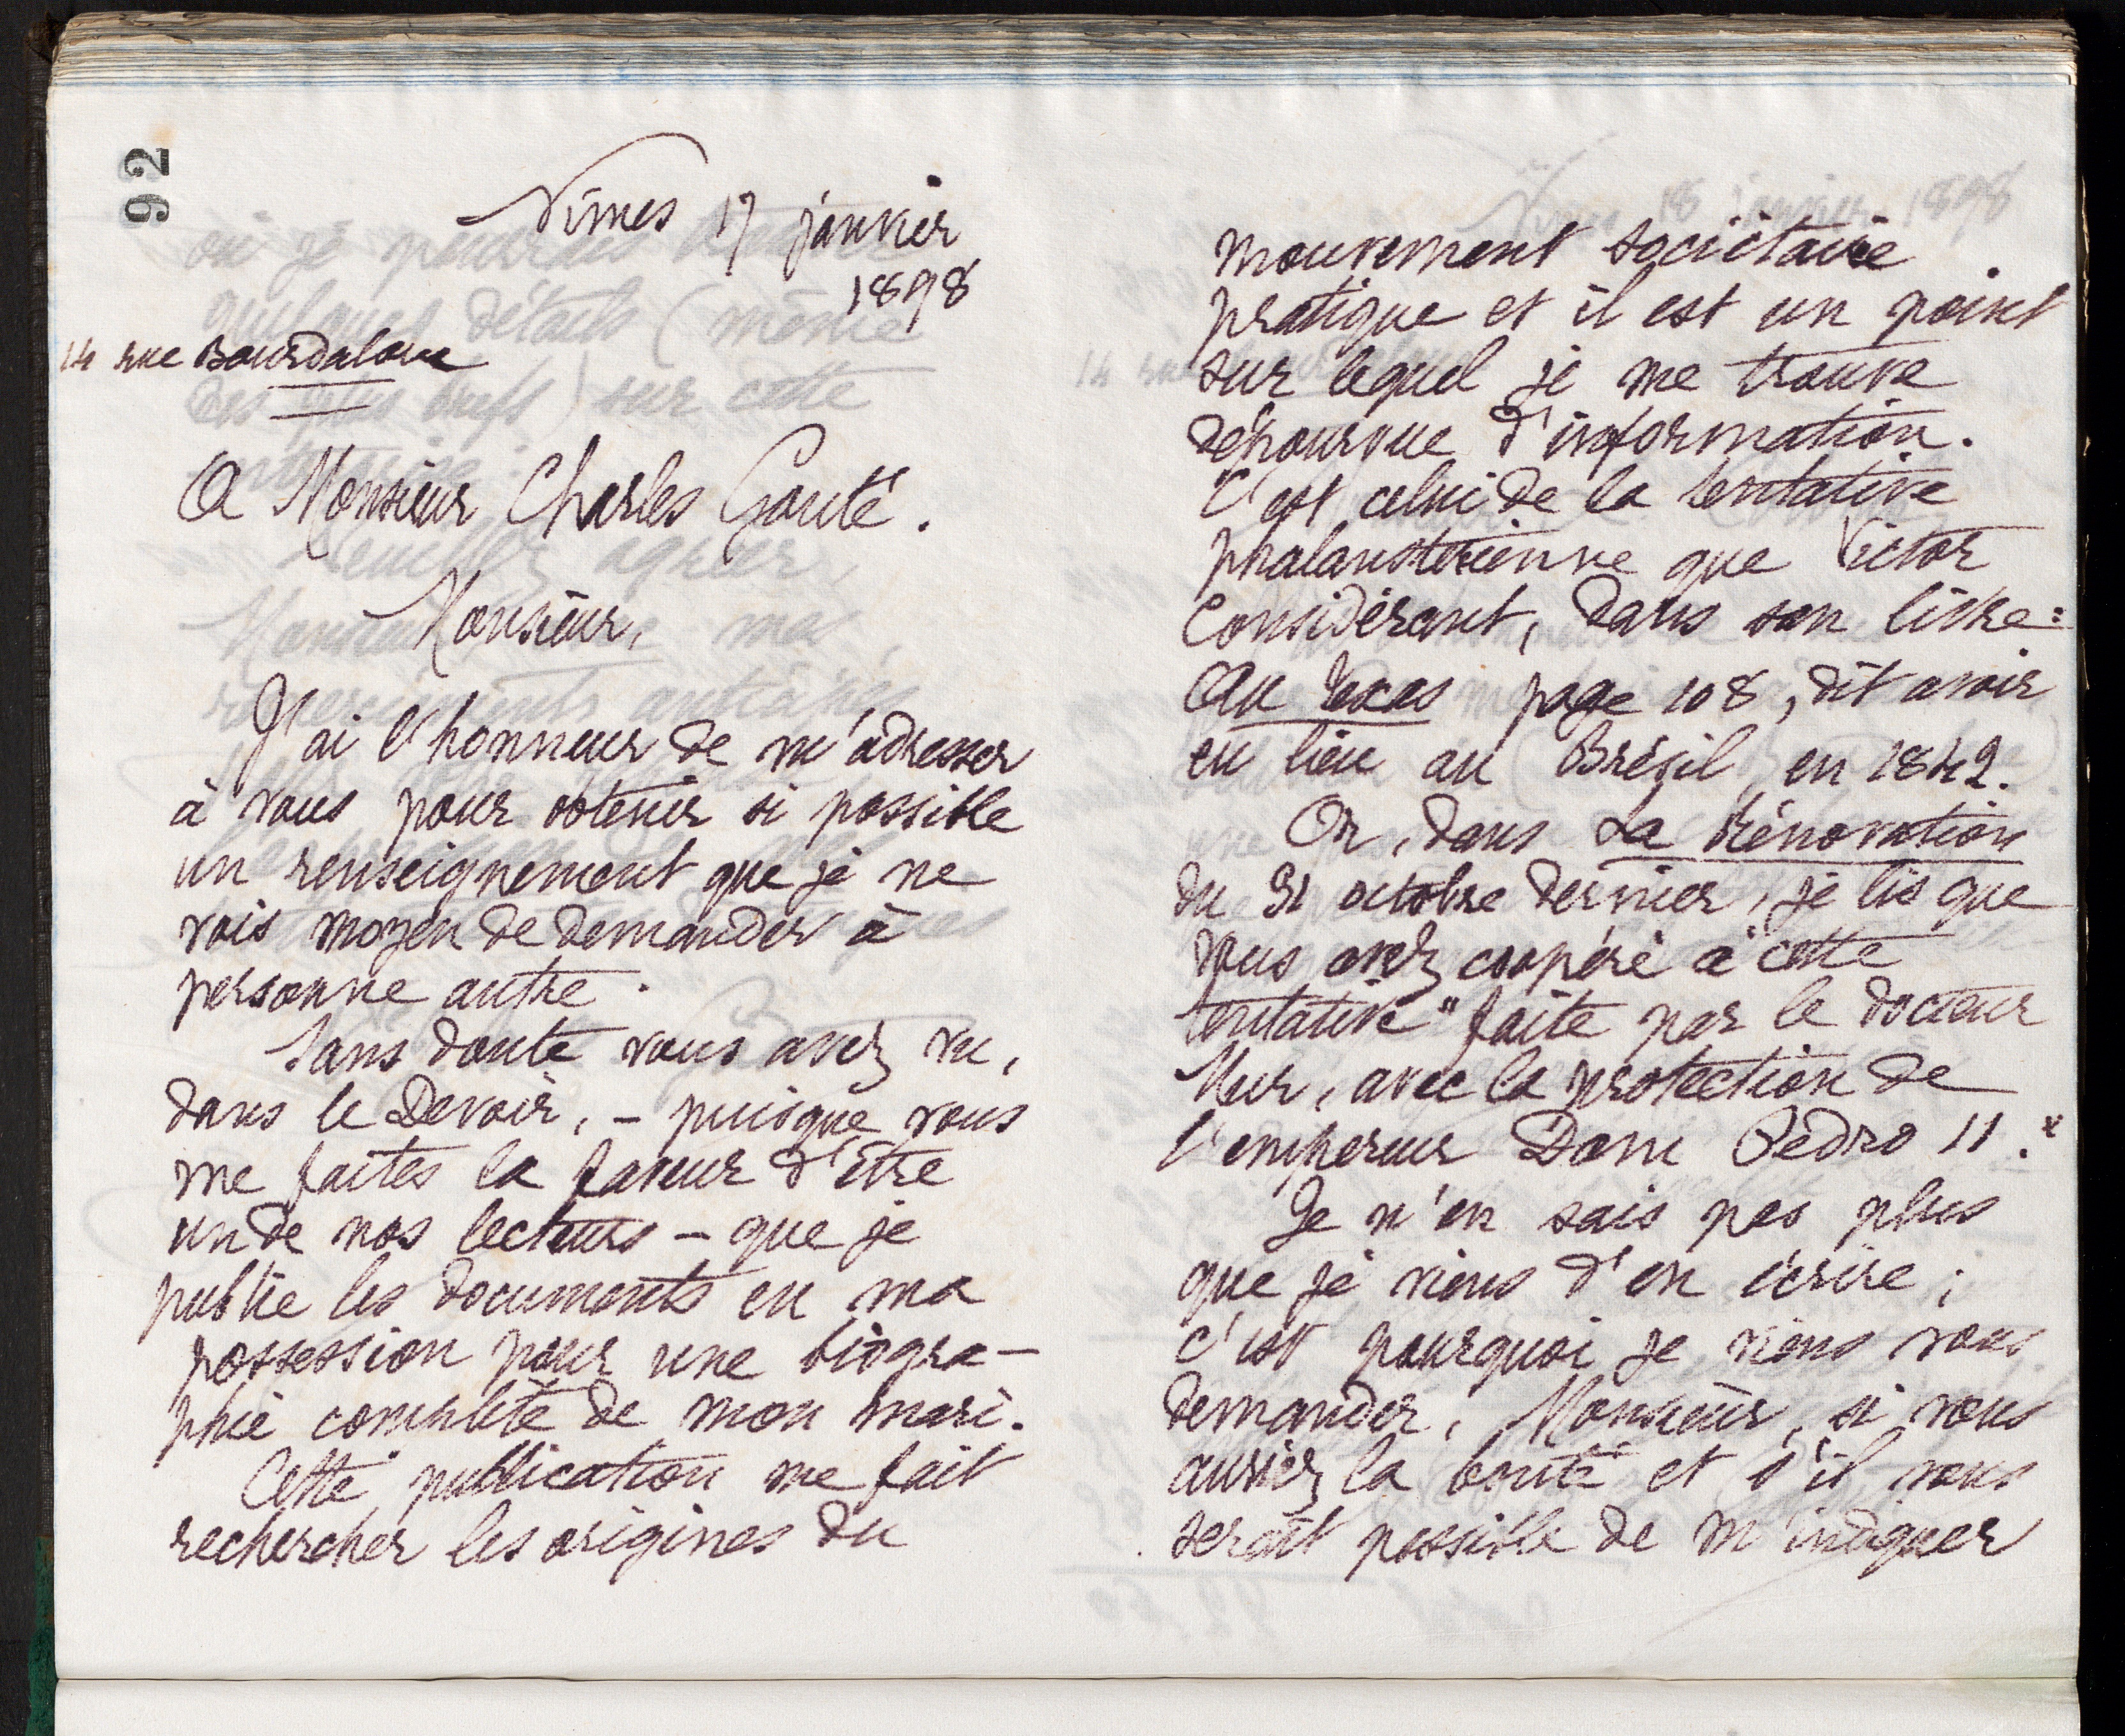 92
Nîmes 17 janvier
1898
14 rue Bourdaloue
A Monsieur Charles Gouté.
Monsieur,
J'ai l'honneur de m'adresser
à vous pour obtenir si possible
un renseignement que je ne
vois moyen de demander à
personne autre.
Sans doute vous avez vu,
dans le Devoir, - puisque vous
me faites la faveur d'être
un de nos lecteurs - que je
publie les documents en ma
possession pour une biogra-
phie complète de mon mari.
Cette publication me fait
rechercher les origines du
mouvement sociétaire
pratique et il est un point
sur lequel je me trouve
dépourvue d'information.
C'est celui de la tentative
phalanstérienne que Victor
Considérant, dans son livre:
Au Texas page 108, dit avoir
eu lieu au Brésil en 1842.
Or, dans La Rénovation
du 31 octobre dernier, je lis que
vous avez coopéré à cette
tentative "faite par le docteur
Mur, avec la protection de
l'empereur Dom Pedro II."
Je n'en sais pas plus
que je viens d'en écrire;
c'est pourquoi je viens vous
demander, Monsieur, si vous
auriez la bonté et s'il vous
serait possible de m'indiquer